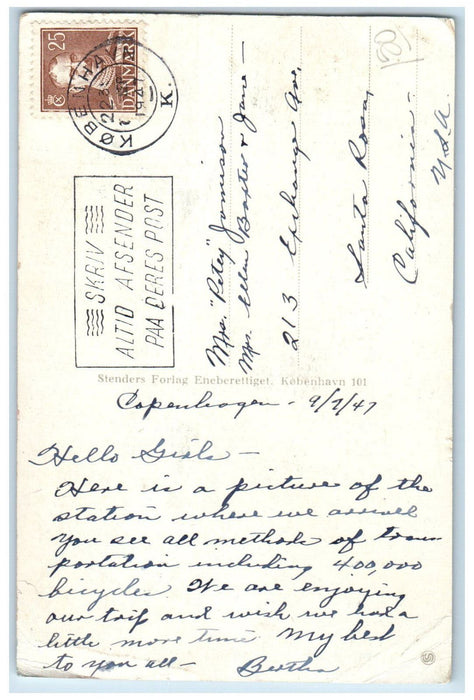 25
DANMARK
KØBENHAVN
K.
SKRIV
ALTID AFSENDER
PAA DERES POST
Mrs. "Petey" Jamison
Mrs. Ellen Baxter & Jane —
213 Exchange Ave,
Santa Rosa,
California —
USA
Stenders Forlag Eneberettiget. København 101
Copenhagen - 9/7/47
Hello Girls —
Here is a picture of the
station where we arrived
You see all methods of trans
portation including 400,000
bicycles We are enjoying
our trip and wish we had a
little more time My best
to you all — Bertha